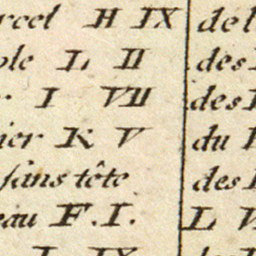 rcel H IX
ple L II
r I VII
ier K V
sans tête
eau F.I.
I IX
de l
des
des
du
des
L